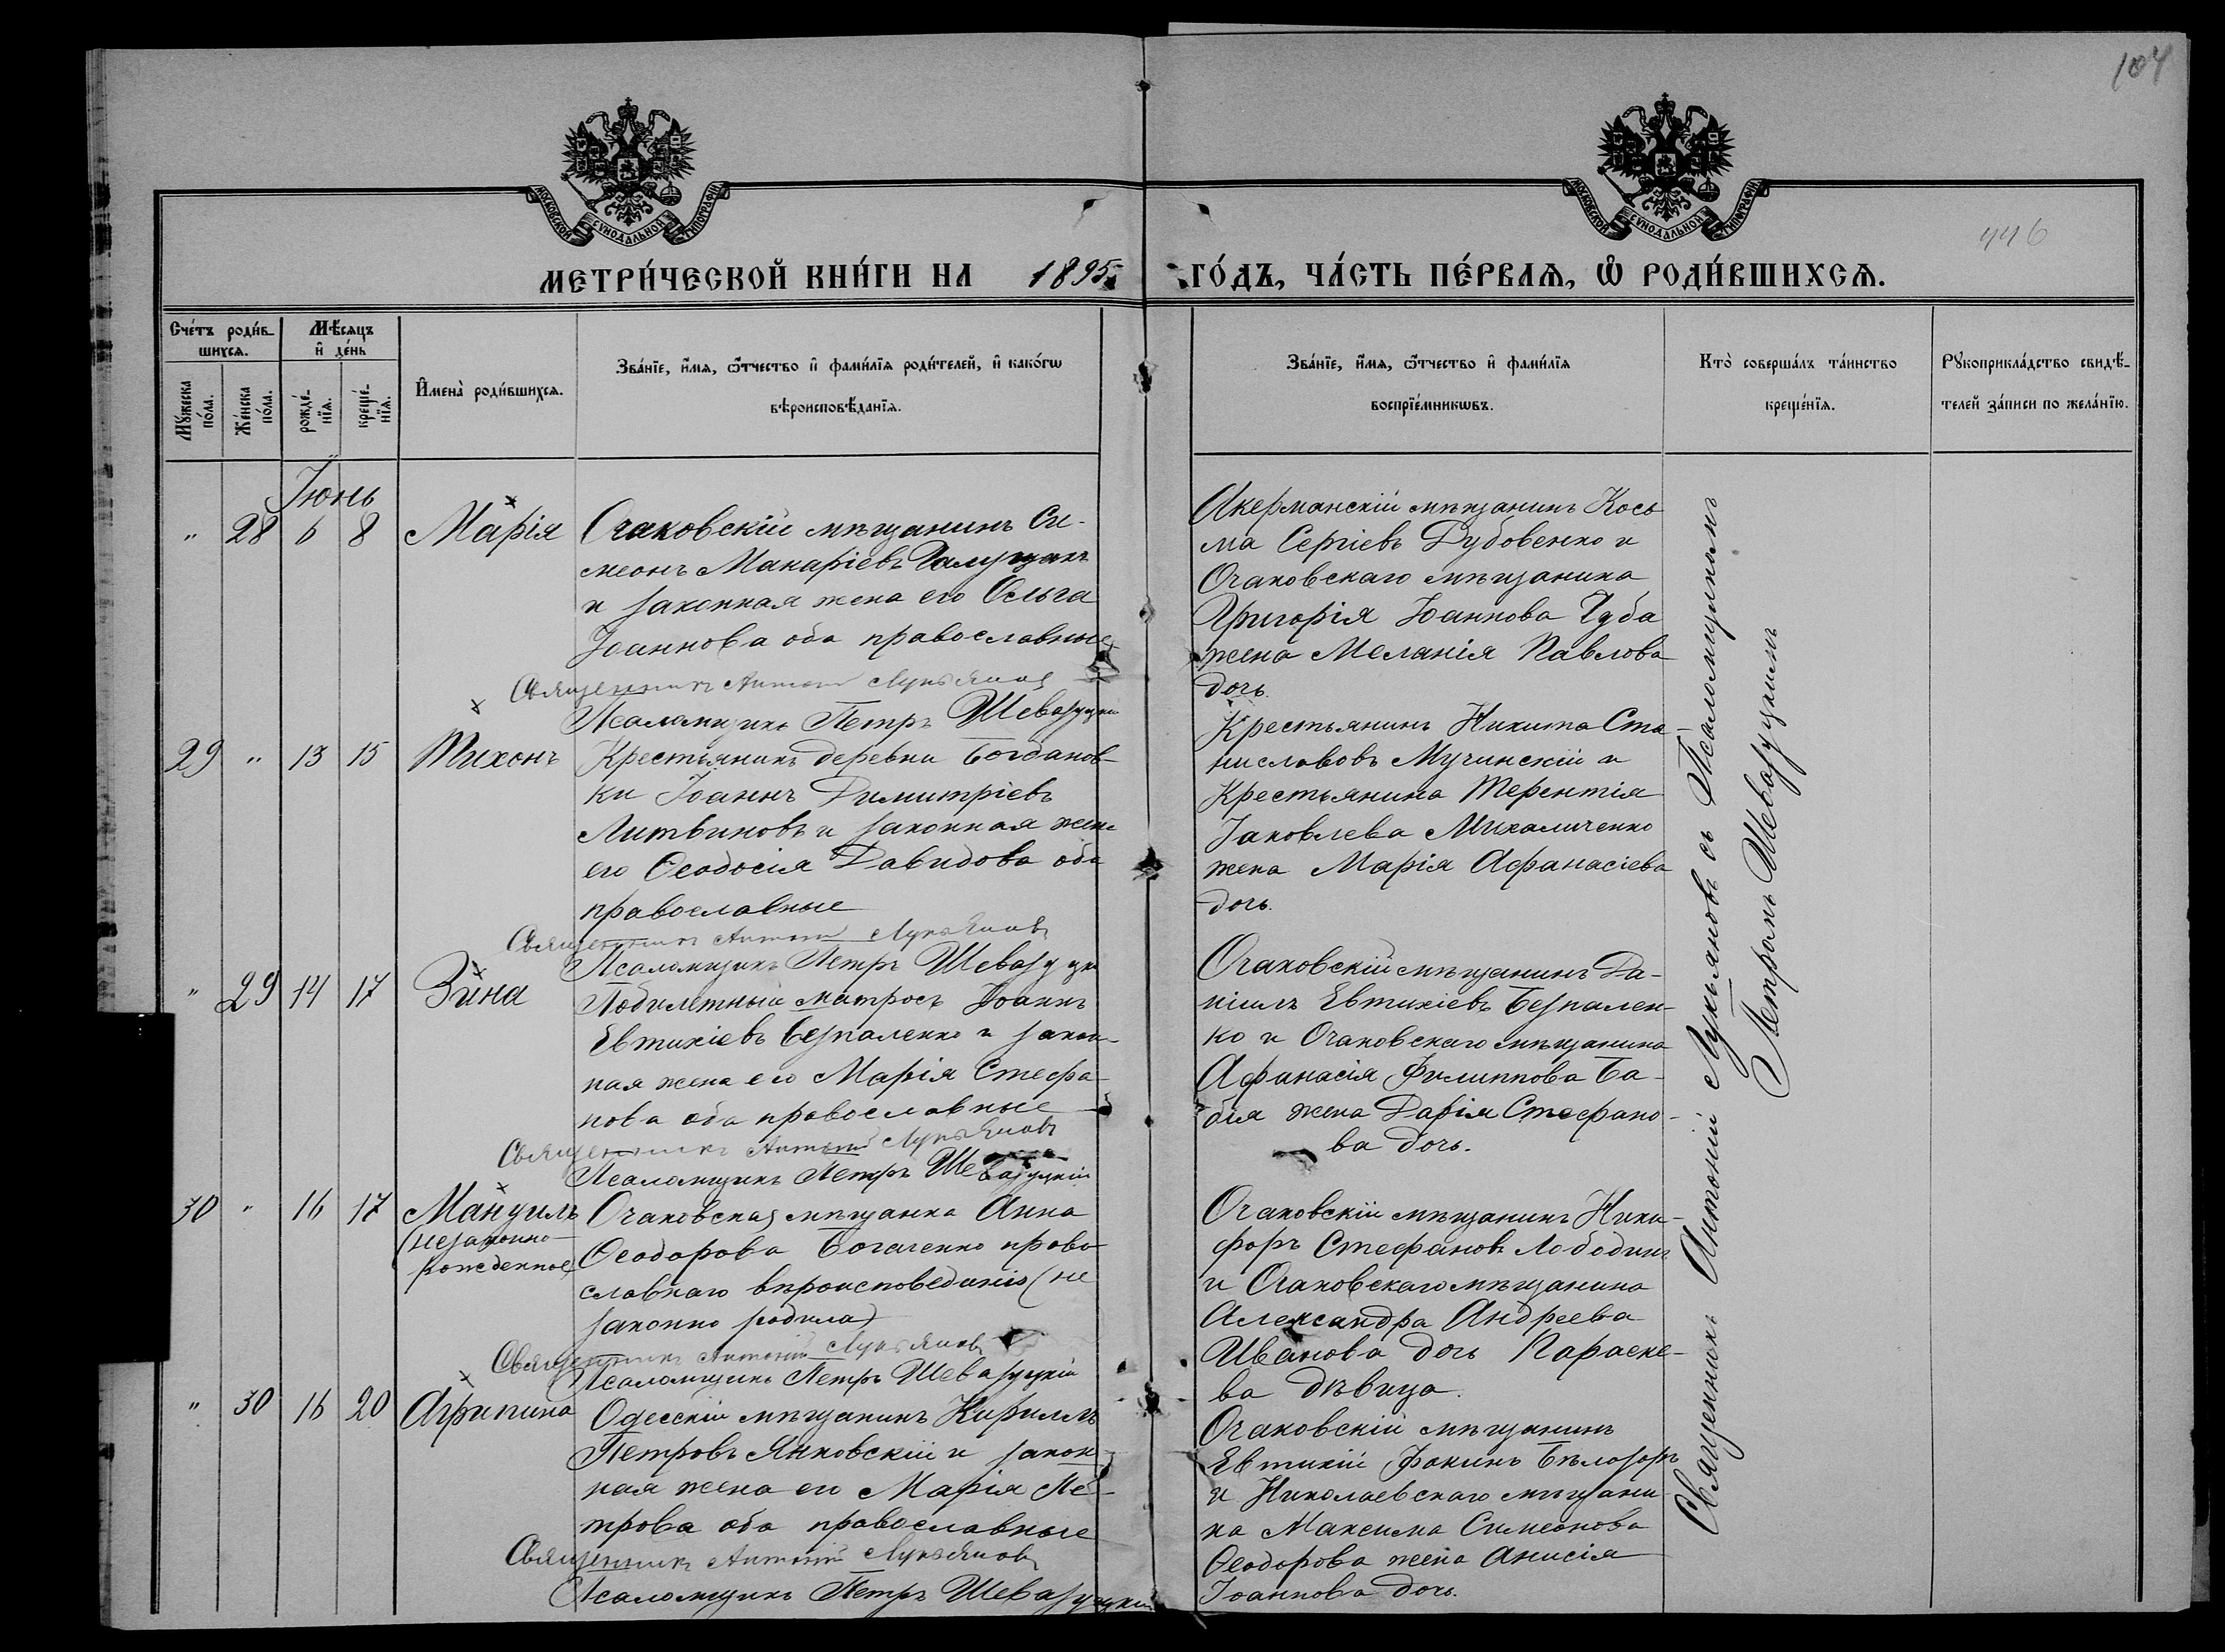 104
446
МОСКОВСКОЙ СѴНОДАЛЬНОЙ ТИПОГРАФІИ
МОСКОВСКОЙ СѴНОДАЛЬНОЙ ТИПОГРАФІИ
МЕТРИ́ЧЕСКОЙ КНИ́ГИ НА 1895 ГО́ДЪ, ЧА́СТЬ ПЕ́РВАѦ, Ѡ҆ РОДИ́ВШИХСѦ.
Сче́тъ роди́в-
шихсѧ.
Мꙋжеска по́ла.
Же́нска по́ла.
Мѣ́сѧцъ
и҆ де́нь
рожде́нїѧ.
креще́нїѧ.
И҆мена̀ роди́вшихсѧ.
Зва́нїе, и҆́мѧ, ѻ҆́тчество и҆ фами́лїѧ роди́телей, и҆ како́гѡ
вѣроисповѣ́данїѧ.
Зва́нїе, и҆́мѧ, ѻ҆́тчество и҆ фами́лїѧ
воспрїе́мникѡвъ.
Кто̀ соверша́лъ та́инство
креще́нїѧ.
Рꙋкоприкла́дство свидѣ́-
телей за́писи по жела́нїю.
Іюнь
" 28 6 8 Марія
Очаковскій мѣщанинъ Си-
меонъ Макаріевъ
и законная жена его Ольга
Іоаннова оба православные
Священникъ Антоній Лукьяновъ
Псаломщикъ Петръ Шевазуцкій
Акерманскій мѣщанинъ Кось
ма Сергіевъ Дубовенко и
Очаковскаго мѣщанина
Григорія Іоаннова Чуба
жена Меланія Павлова
дочь.
29 " 13 15 Тихонъ
Крестьянинъ деревни Богданов-
ки Іоаннъ Димитріевъ
Литвиновъ и законная жена
его Ѳеодосія Давидова оба
православные
Священникъ Антоній Лукьяновъ
Псаломщикъ Петръ Шевазуцкій
Крестьянинъ Никита Ста-
ниславовъ Мучинскій и
Крестьянина Терентія
Іаковлева Михаличенко
жена Марія Афанасіева
дочь.
" 29 14 17 Зина
Побилетный матросъ Іоаннъ
Евтихіевъ Безпаленко и закон-
ная жена его Марія Стефа-
нова оба православные
Священникъ Антоній Лукьяновъ
Псаломщикъ Петръ Шевазуцкій
Очаковскій мѣщанинъ Да-
ніилъ Евтихіевъ Безпален-
ко и Очаковскаго мѣщанина
Афанасія Филиппова Ба-
бія жена Дарія Стефано-
ва дочь.
30 " 16 17 Мануилъ
(незаконно-
рожденное)
Очаковская мѣщанка Анна
Ѳеодорова Богаченко право
славнаго вѣроисповеданія (не
законно родила)
Священникъ Антоній Лукьяновъ
Псаломщикъ Петръ Шевазуцкій
Очаковскій мѣщанинъ Ники-
форъ Стефановъ Лободинъ
и Очаковскаго мѣщанина
Александра Андреева
Иванова дочь Параске-
ва дѣвица.
" 30 16 20 Агрипина
Одесскій мѣщанинъ Кириллъ
Петровъ Янковскій и закон
ная жена его Марія Пе-
трова оба православные
Священникъ Антоній Лукьяновъ
Псаломщикъ Петръ Шевазуцкій
Очаковскій мѣщанинъ
Евтихій Фокинъ Бѣлозоръ
и Николаевскаго мѣщани
на Максима Симеонова
Ѳеодорова жена Анисія
Іоаннова дочь.
Священникъ Антоній Лукьяновъ съ Псаломщикомъ
Петромъ Шевазуцкимъ